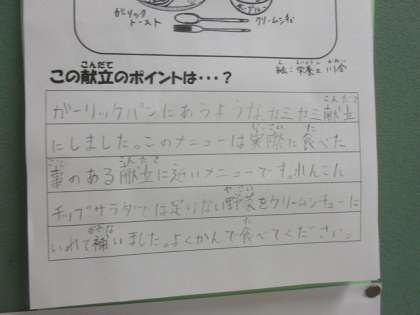 ガーリック
トースト
クリームシチュー
絵：栄養士
この献立のポイントは・・・？
こんだて
ガーリックパンにあうようなカミカミ献立
にしました。このメニューは実際に食べた
事のある献立に近いメニューです。れんこん
チップサラダでは足りない野菜をクリームシチューに
いれて補いました。よくかんで食べてください。